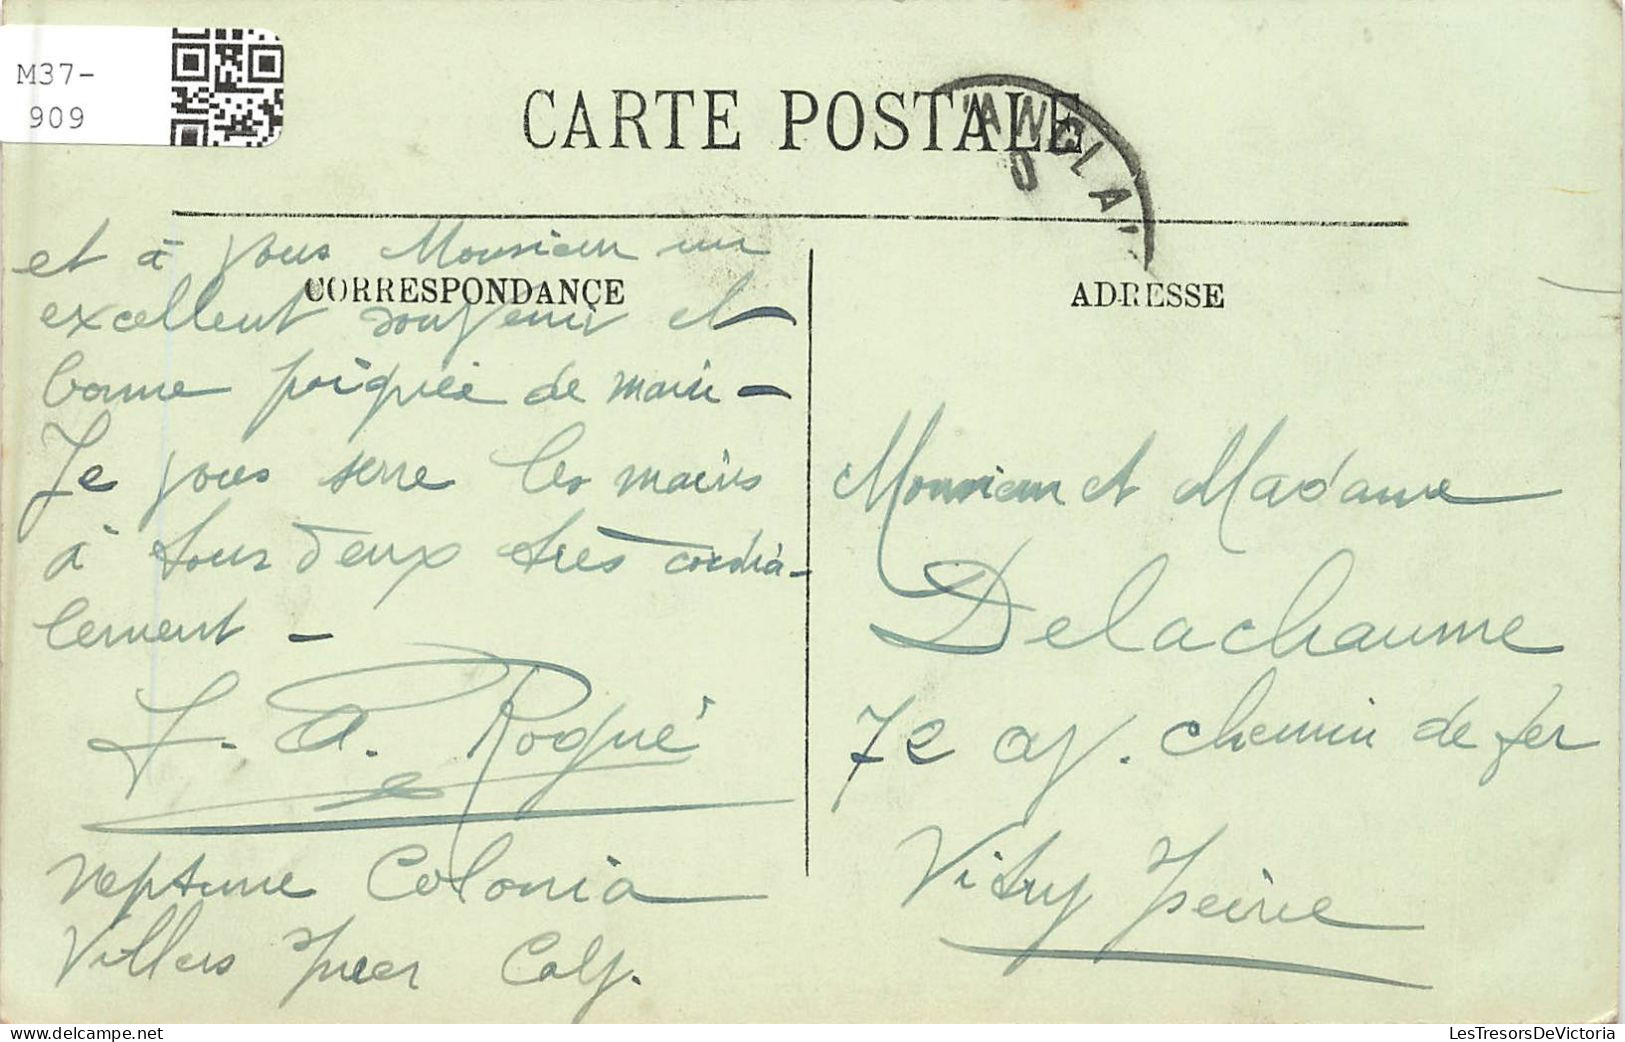 M37-
909
CARTE POSTALE
ANGLA
CORRESPONDANCE
ADRESSE
et à vous Monsieur un
excellent souvenir et
bonne poignée de main -
Je vous serre les mains
à tous deux très cordia-
lement -
J. A. Rogué
Neptune Colonia
Villers mer Calv.
Monsieur et Madame
Delachaume
72 av. chemin de fer
Vitry Seine
LesTresorsDeVictoria
www.delcampe.net